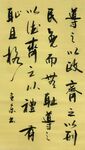 導之以政齊之以刑
民免而無恥導之
以德齊之以禮有
恥且格